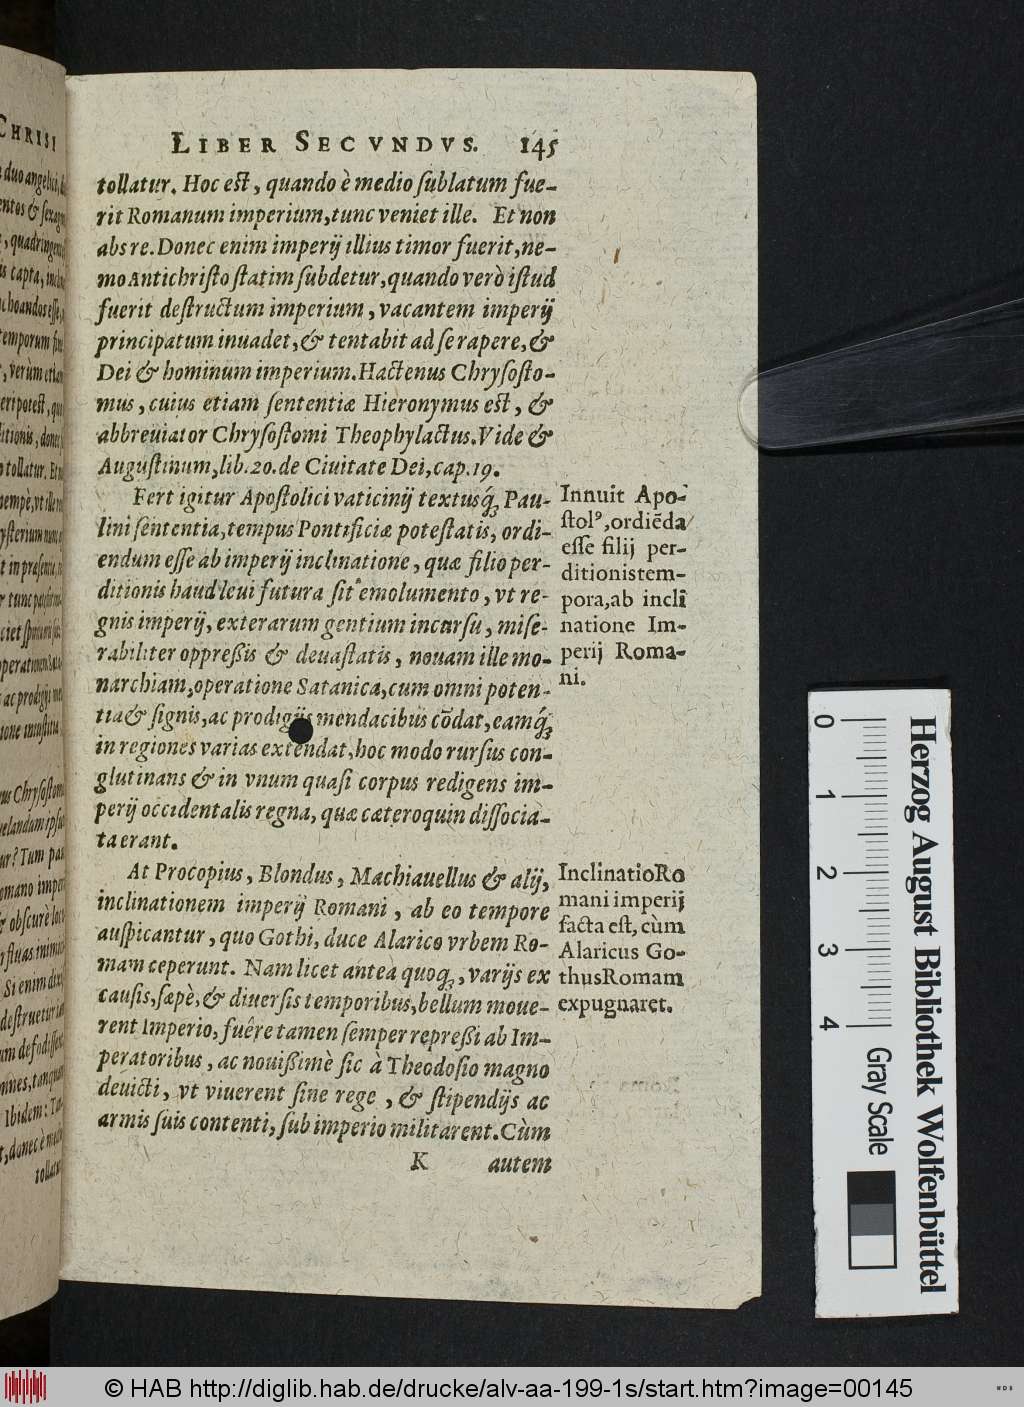 LIBER SECVNDVS. 145
tollatur. Hoc est, quando è medio sublatum fue-
rit Romanum imperium, tunc veniet ille. Et non
abs re. Donec enim imperij illius timor fuerit, ne-
mo Antichristo statim subdetur, quando verò istud
fuerit destructum imperium, vacantem imperij
principatum inuadet, & tentabit ad se rapere, &
Dei & hominum imperium. Hactenus Chrysosto-
mus, cuius etiam sententiæ Hieronymus est, &
abbreuiator Chrysostomi Theophylactus. Vide &
Augustinum, lib. 20. de Ciuitate Dei, cap. 19.
Fert igitur Apostolici vaticinij textusq́; Pau-
lini sententia, tempus Pontificiæ potestatis, ordi-
endum esse ab imperij inclinatione, quæ filio per-
ditionis haud leui futura sit emolumento, vt re-
gnis imperij, exterarum gentium incursu, mise-
rabiliter oppreßis & deuastatis, nouam ille mo-
narchiam, operatione Satanica, cum omni poten-
tia & signis, ac prodigijs mendacibus cōdat, eamq́;
in regiones varias extendat, hoc modo rursus con-
glutinans & in vnum quasi corpus redigens im-
perij occidentalis regna, quæ cæteroquin dissocia-
ta erant.
Innuit Apo-
stolꝰ, ordiēda
esse filij per-
ditionis tem-
pora, ab incli
natione Im-
perij Roma-
ni.
At Procopius, Blondus, Machiauellus & alij,
inclinationem imperij Romani, ab eo tempore
auspicantur, quo Gothi, duce Alarico vrbem Ro-
mam ceperunt. Nam licet anteà quoq;, varijs ex
causis, sæpè, & diuersis temporibus, bellum moue-
rent Imperio, fuêre tamen semper repreßi ab Im-
peratoribus, ac nouißimè sic à Theodosio magno
deuicti, vt viuerent sine rege, & stipendijs ac
armis suis contenti, sub imperio militarent. Cùm
K autem
Inclinatio Ro
mani imperij
facta est, cùm
Alaricus Go-
thus Romam
expugnaret.
CHRISI
0 1 2 3 4
Gray Scale
Herzog August Bibliothek Wolfenbüttel
© HAB http://diglib.hab.de/drucke/alv-aa-199-1s/start.htm?image=00145